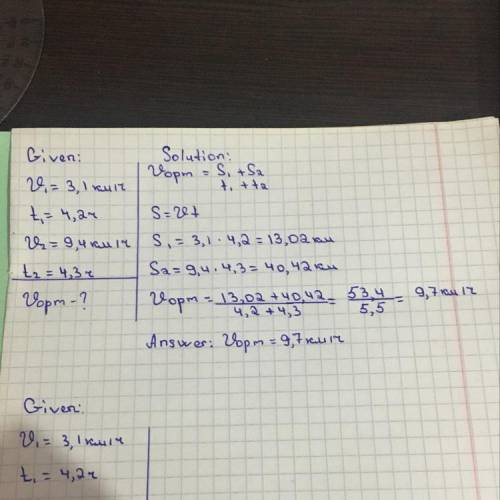 Given:
v₁ = 3,1 км/ч
t₁ = 4,2ч
v₂ = 9,4 км/ч
t₂ = 4,3ч
vорт - ?
Solution:
vорт = S₁ + S₂
t₁ + t₂
S = vt
S₁ = 3,1 · 4,2 = 13,02 км
S₂ = 9,4 · 4,3 = 40,42 км
vорт = 13,02 + 40,42 / 4,2 + 4,3 = 53,4 / 5,5 = 9,7 км/ч
Answer: vорт = 9,7 км/ч
Given:
v₁ = 3,1 км/ч
t₁ = 4,2ч